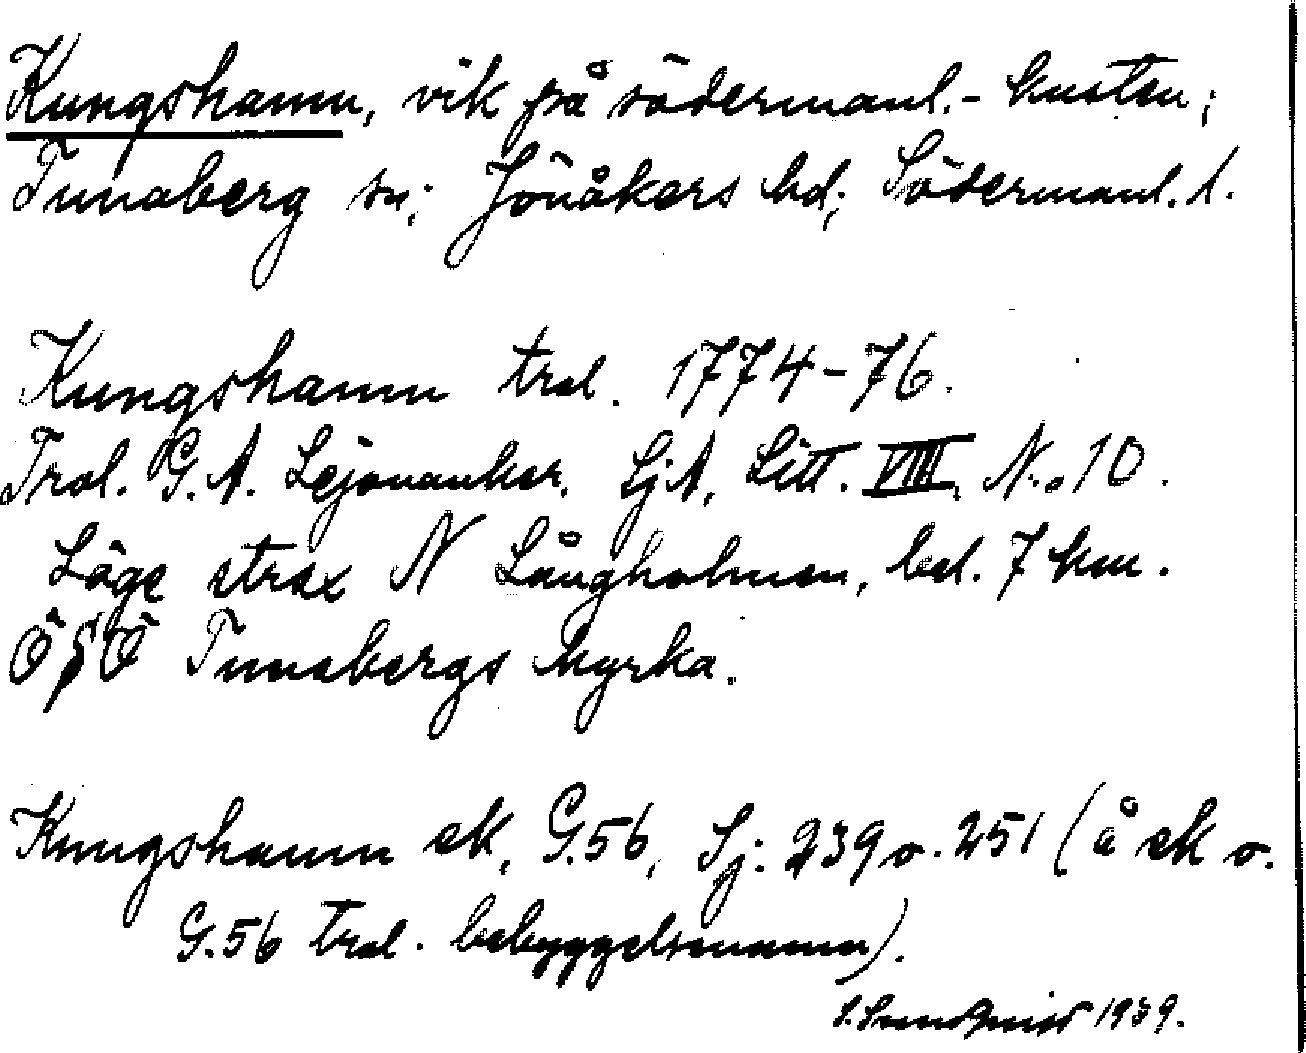 Kungshamn, vik på södermanl.- kusten;
Tunaberg sn; Jönåkers hd; Södermanl. l.
Kungshamn trol. 1774-76.
Trol. G. A. Lejonanker. SjA, Litt. VIII, No. 10.
Läge strax N Långholmen, bel. 7 km.
ÖSÖ Tunabergs kyrka.
Kungshamn ek, G.56, Sj. 239 o. 251 (å ek o.
G.56 trol. bebyggelsenamn).
S. Sundqvist 1939.